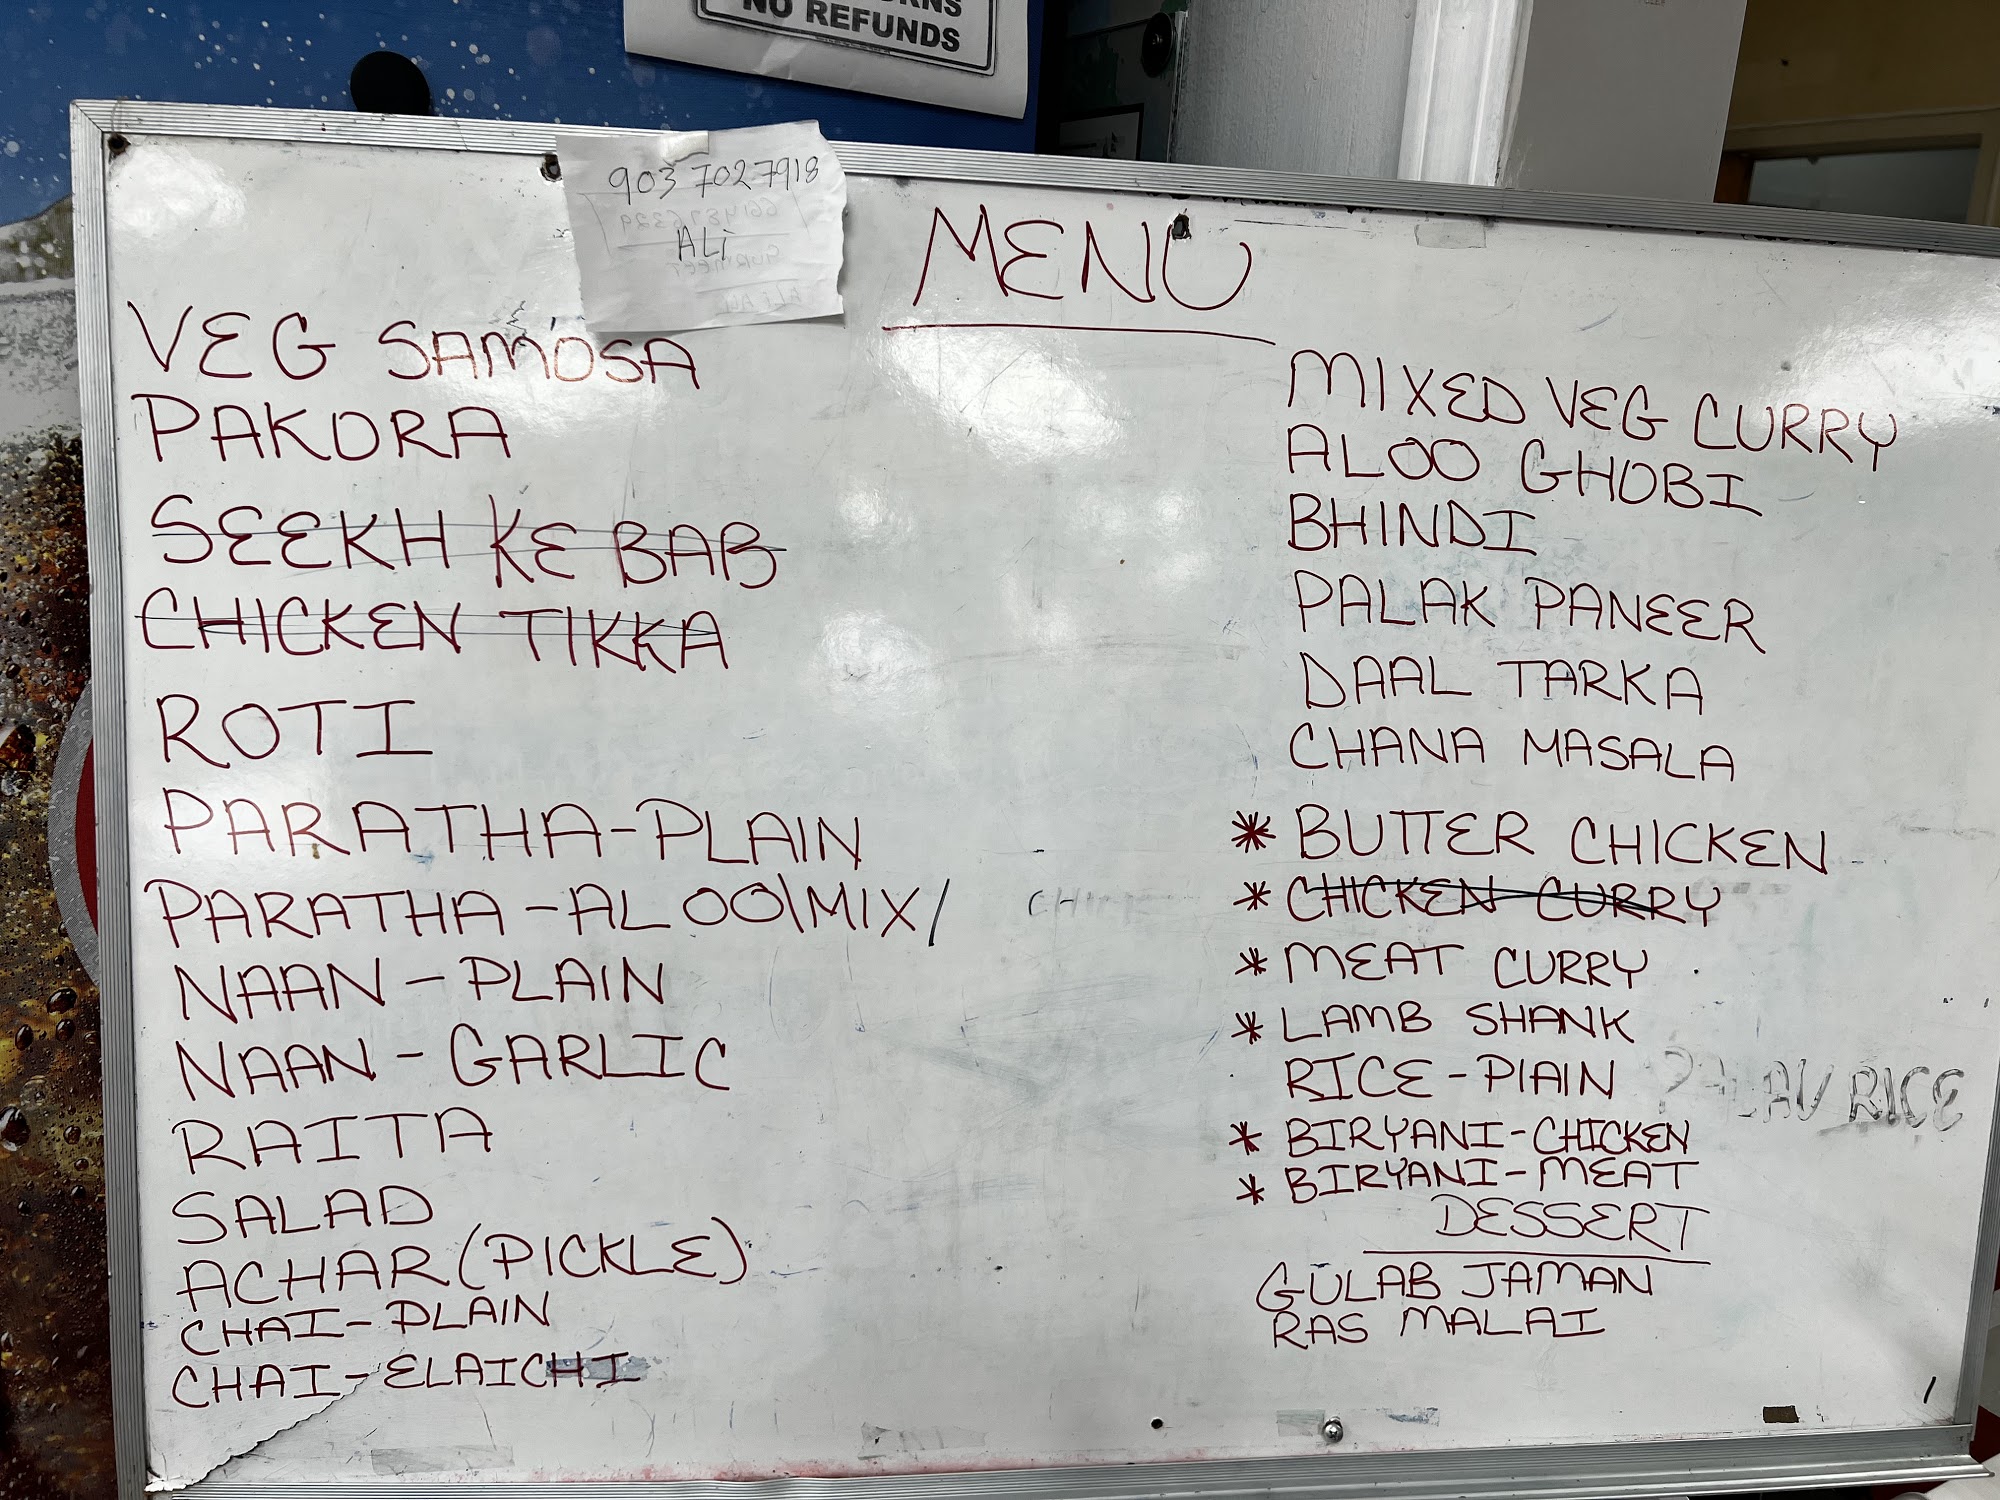 NO REFUNDS
903 7027918
ALi
MENU
VEG SAMOSA
PAKORA
SEEKH KEBAB
CHICKEN TIKKA
ROTI
PARATHA-PLAIN
PARATHA-ALOO\MIX/
NAAN-PLAIN
NAAN-GARLIC
RAITA
SALAD
ACHAR (PICKLE)
CHAI-PLAIN
CHAI-ELAICHI
MIXED VEG CURRY
ALOO GHOBI
BHINDI
PALAK PANEER
DAAL TARKA
CHANA MASALA
* BUTTER CHICKEN
* CHICKEN CURRY
* MEAT CURRY
* LAMB SHANK
RICE-PlAIN PALAV RICE
* BIRYANI-CHICKEN
* BIRYANI-MEAT
DESSERT
GULAB JAMAN
RAS MALAI